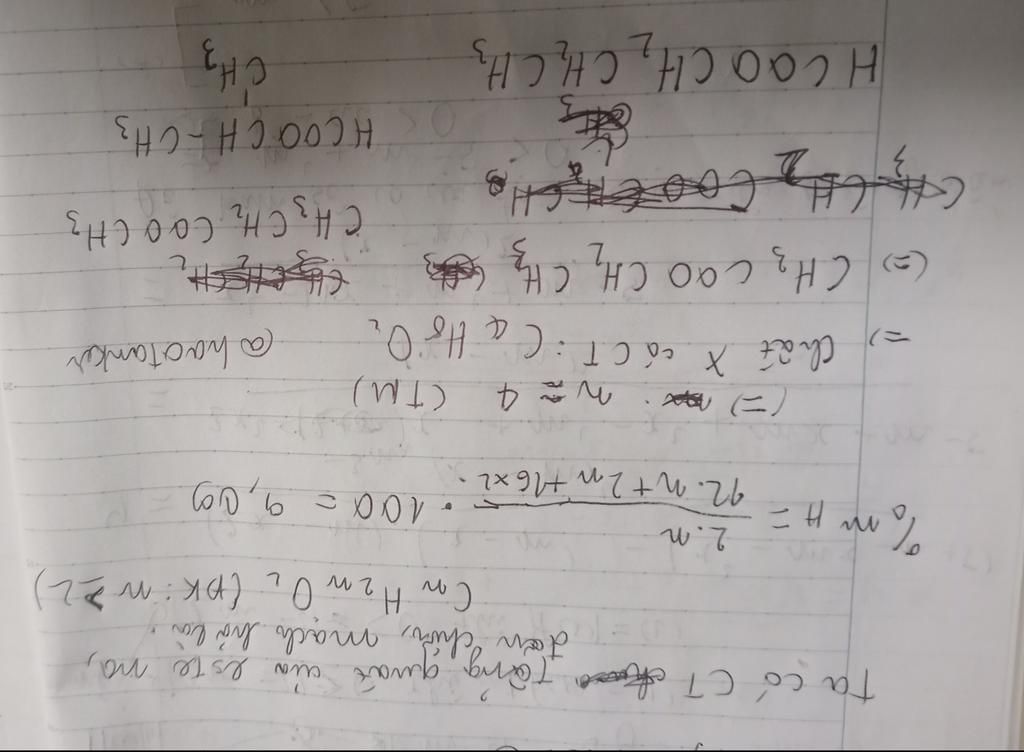 Ta có CT Tổng quát của este no,
đơn chức, mạch hở là:
CnH2nO2 (ĐK: n ≥ 2)
%mH = 2.n / 12.n + 2n + 16x2 . 100 = 9,09
(=) n = 4 (TM)
=) Chất X có CT: C4H8O2 @haotanker
(=) CH3COOCH2CH3
CH3CH2COOCH3
HCOOCH-CH3
CH3
HCOOCH2CH2CH3